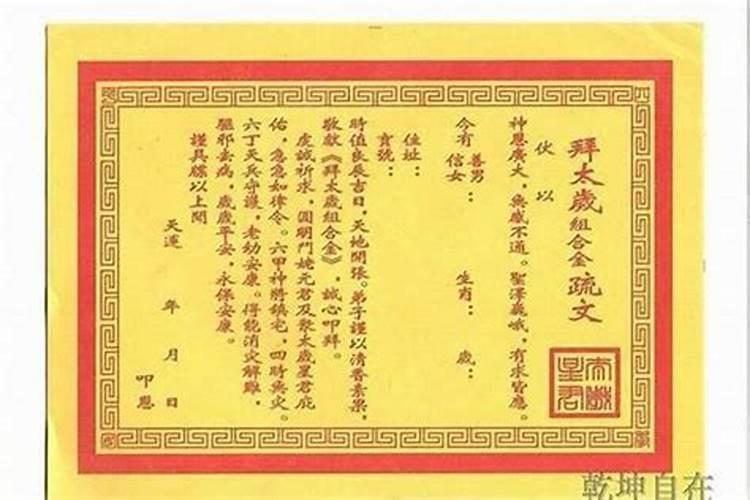 拜太歲組合金疏文
伏以
神恩廣大，無感不通。聖澤巍峨，有求皆應。
今有 善男 信女： 生肖： 歲：
住址：
寶號：
時值良辰吉日，天地開張。弟子謹以清香素果，
敬獻《拜太歲組合金》，誠心叩拜。
虔誠祈求，圓明門姥元君及眾太歲星君庇
佑，急急如律令。六甲神將鎮宅，四時無災。
六丁天兵守護，老幼安康。得能消災解難，
驅邪去病，歲歲平安，永保安康。
謹具牒以上聞
天運 年 月 日
叩恩
太歲星君
乾坤自在